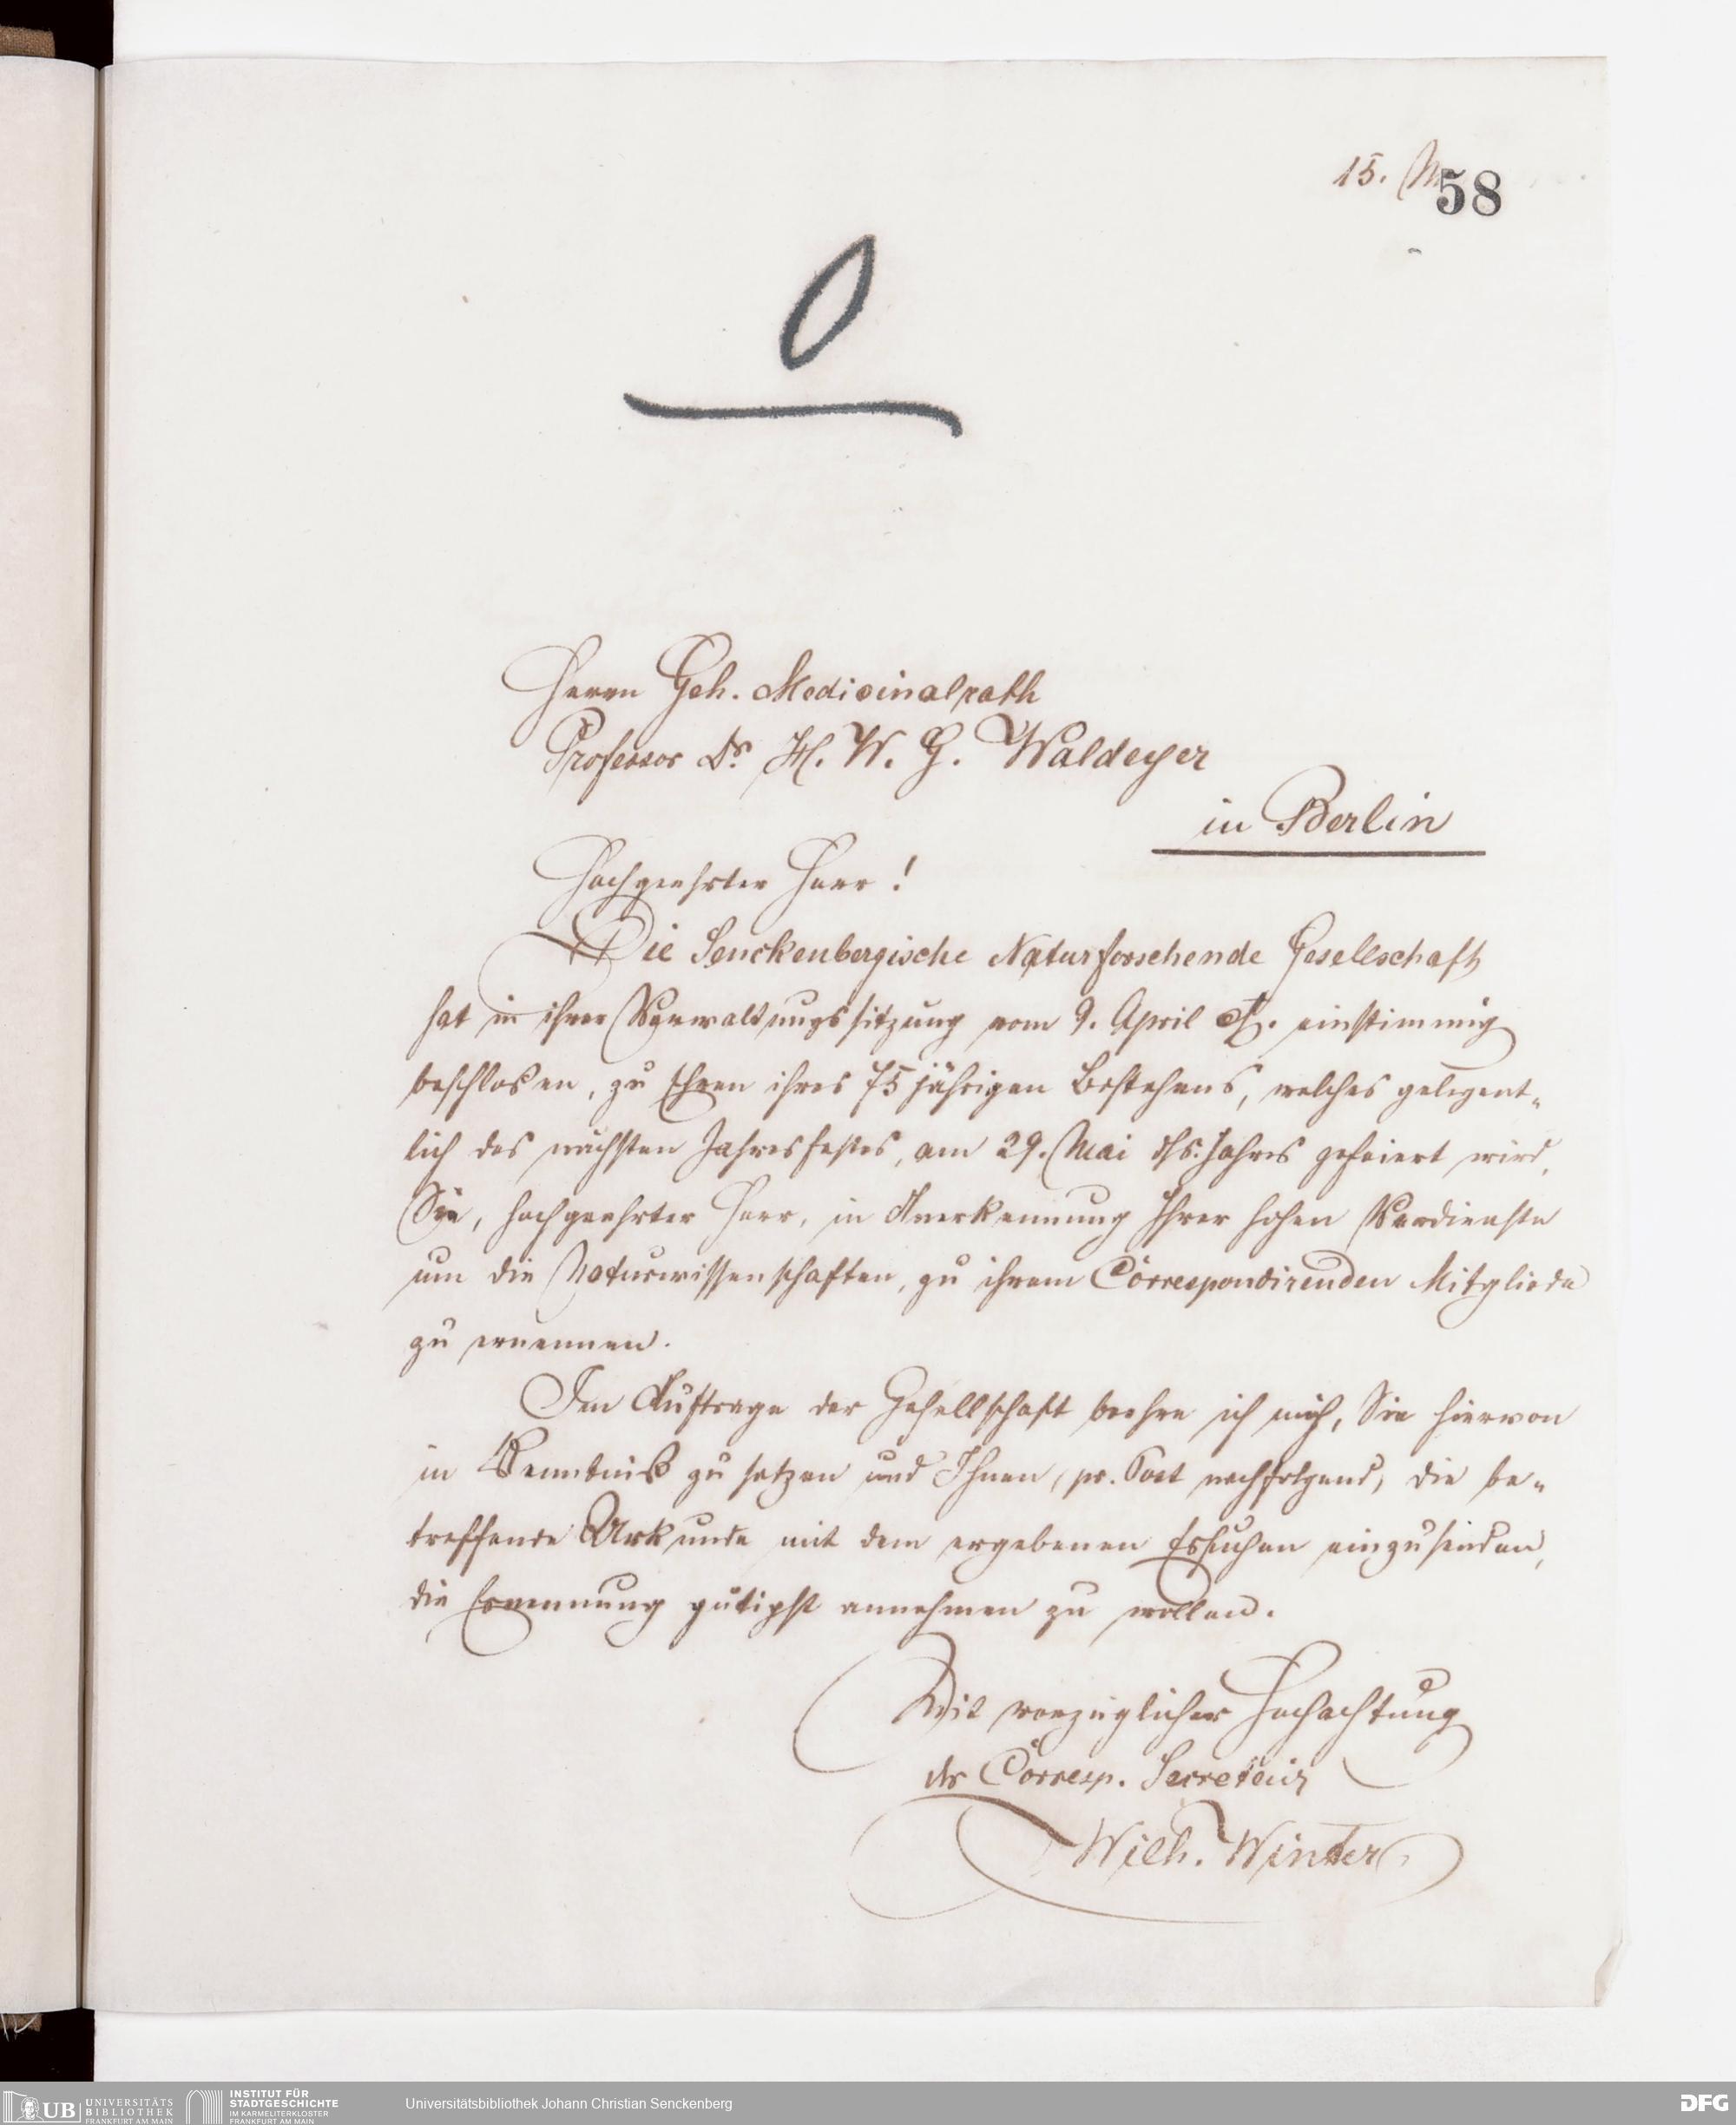 15. M
58
Herrn Geh. Medicinalrath
Professor Dr. H. W. G. Waldeyer
in Berlin
Hochgeehrter Herr!
Die Senckenbergische Naturforschende Gesellschaft
hat in ihrer Verwaltungssitzung vom 9. April ct. einstimmig
beschloßen, zu Ehren ihres 75jährigen Bestehens, welches gelegent-
lich des nächsten Jahresfestes, am 29. Mai ds. Jahres gefeiert wird,
Sie, hochgeehrter Herr, in Anerkennung Ihrer hohen Verdienste
um die Naturwissenschaften, zu ihrem Correspondirenden Mitgliede
zu ernennen.
Im Auftrage der Gesellschaft beehre ich mich, Sie hiervon
in Kenntniß zu setzen und Ihnen, pr. Post nachfolgend, die be-
treffende Urkunde mit dem ergebenen Ersuchen einzusenden,
die Ernennung gütigst annehmen zu wollen.
Mit vorzüglicher Hochachtung
der Corresp. Secretair
Wilh. Winter
UB UNIVERSITÄTS
BIBLIOTHEK
FRANKFURT AM MAIN
INSTITUT FÜR
STADTGESCHICHTE
IM KARMELITERKLOSTER
FRANKFURT AM MAIN
Universitätsbibliothek Johann Christian Senckenberg
DFG